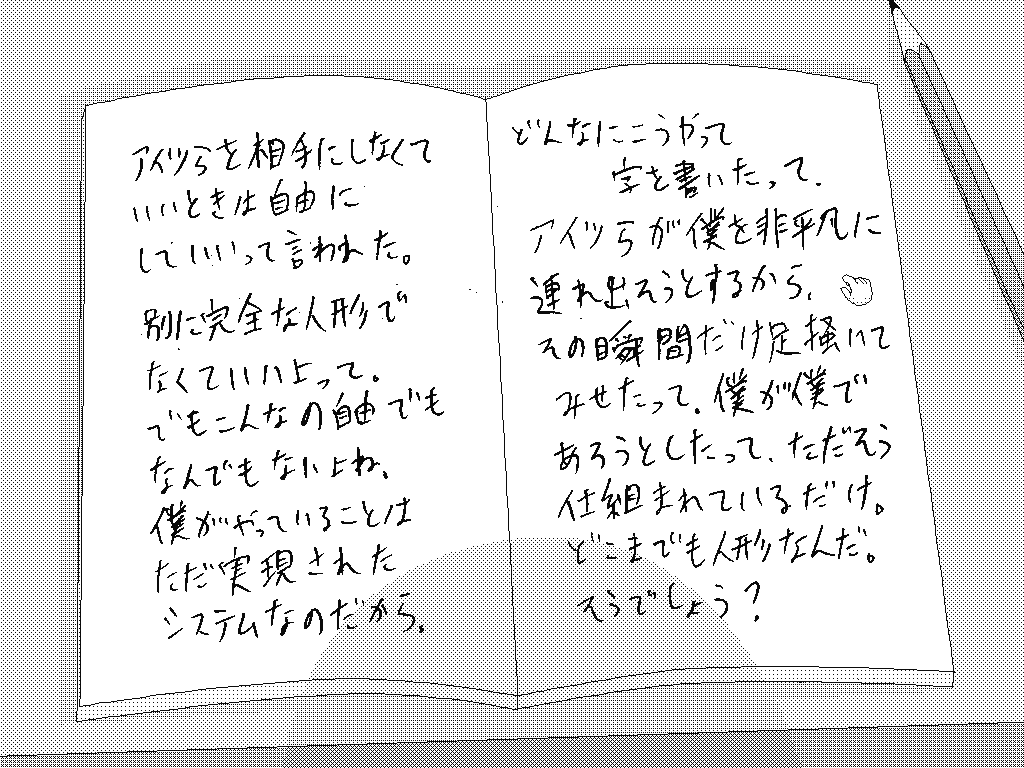 アイツらを相手にしなくて
いいときは自由に
していいって言われた。
別に完全な人形で
なくていいよって。
でもこんなの自由でも
なんでもないよね。
僕がやっていることは
ただ実現された
システムなのだから。
どんなにこうやって
字を書いたって、
アイツらが僕を非平凡に
連れ出そうとするから、
その瞬間だけ足掻いて
みせたって、僕が僕で
あろうとしたって、ただそう
仕組まれているだけ。
どこまでも人形なんだ。
そうでしょう？